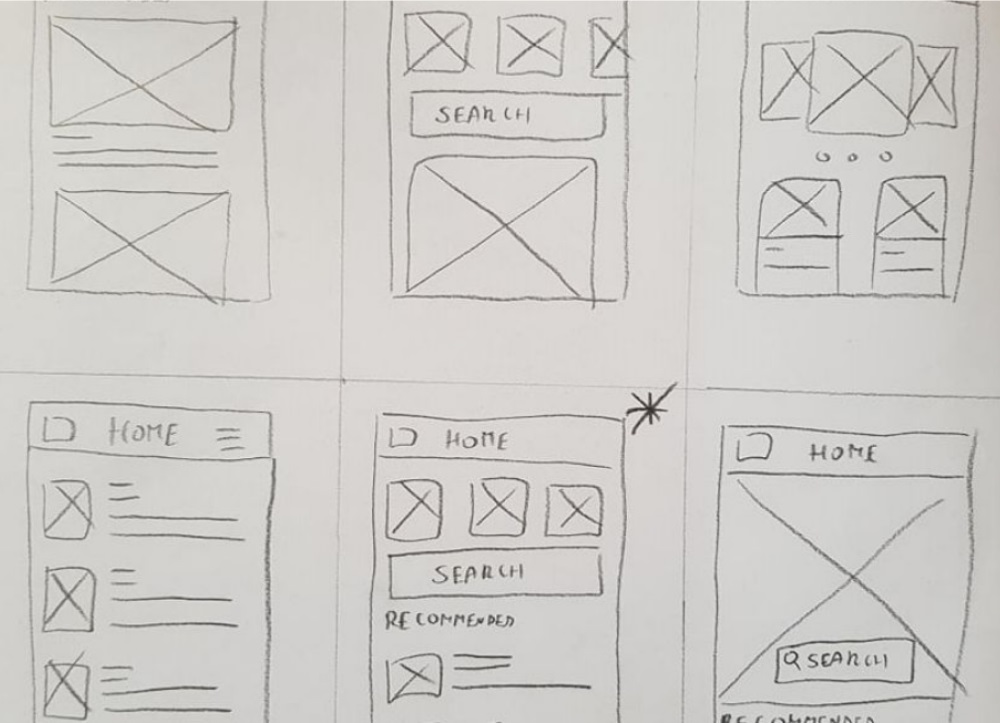 SEARCH
HOME
HOME
SEARCH
RECOMMENDED
HOME
SEARCH
RECOMMENDED